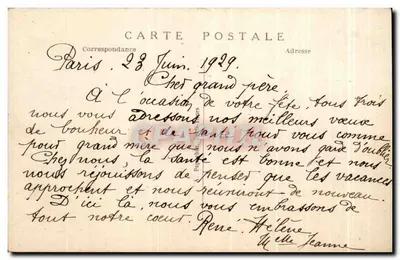 CARTE POSTALE
Correspondance
Adresse
Paris. 23 Juin. 1929.
Cher grand père,
A l'occasion de votre fête, tous trois
nous vous adressons nos meilleurs vœux
de bonheur et de santé pour vous comme
pour grand mère que nous n'avons garde d'oublier
Chez nous, la santé est bonne et nous
nous réjouissons de penser que les vacances
approchent et nous réuniront de nouveau.
D'ici là, nous vous embrassons de
tout notre cœur. René. Hélène
Melle Jeanne